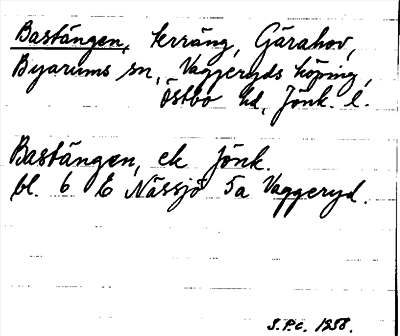 Bastängen, terräng, Gärahov,
Byarums sn, Vaggeryds köping,
Östbo hd, Jönk. l.
Bastängen, ek Jönk.
bl. 6 E Nässjö 5a Vaggeryd.
S.P.C. 1958.